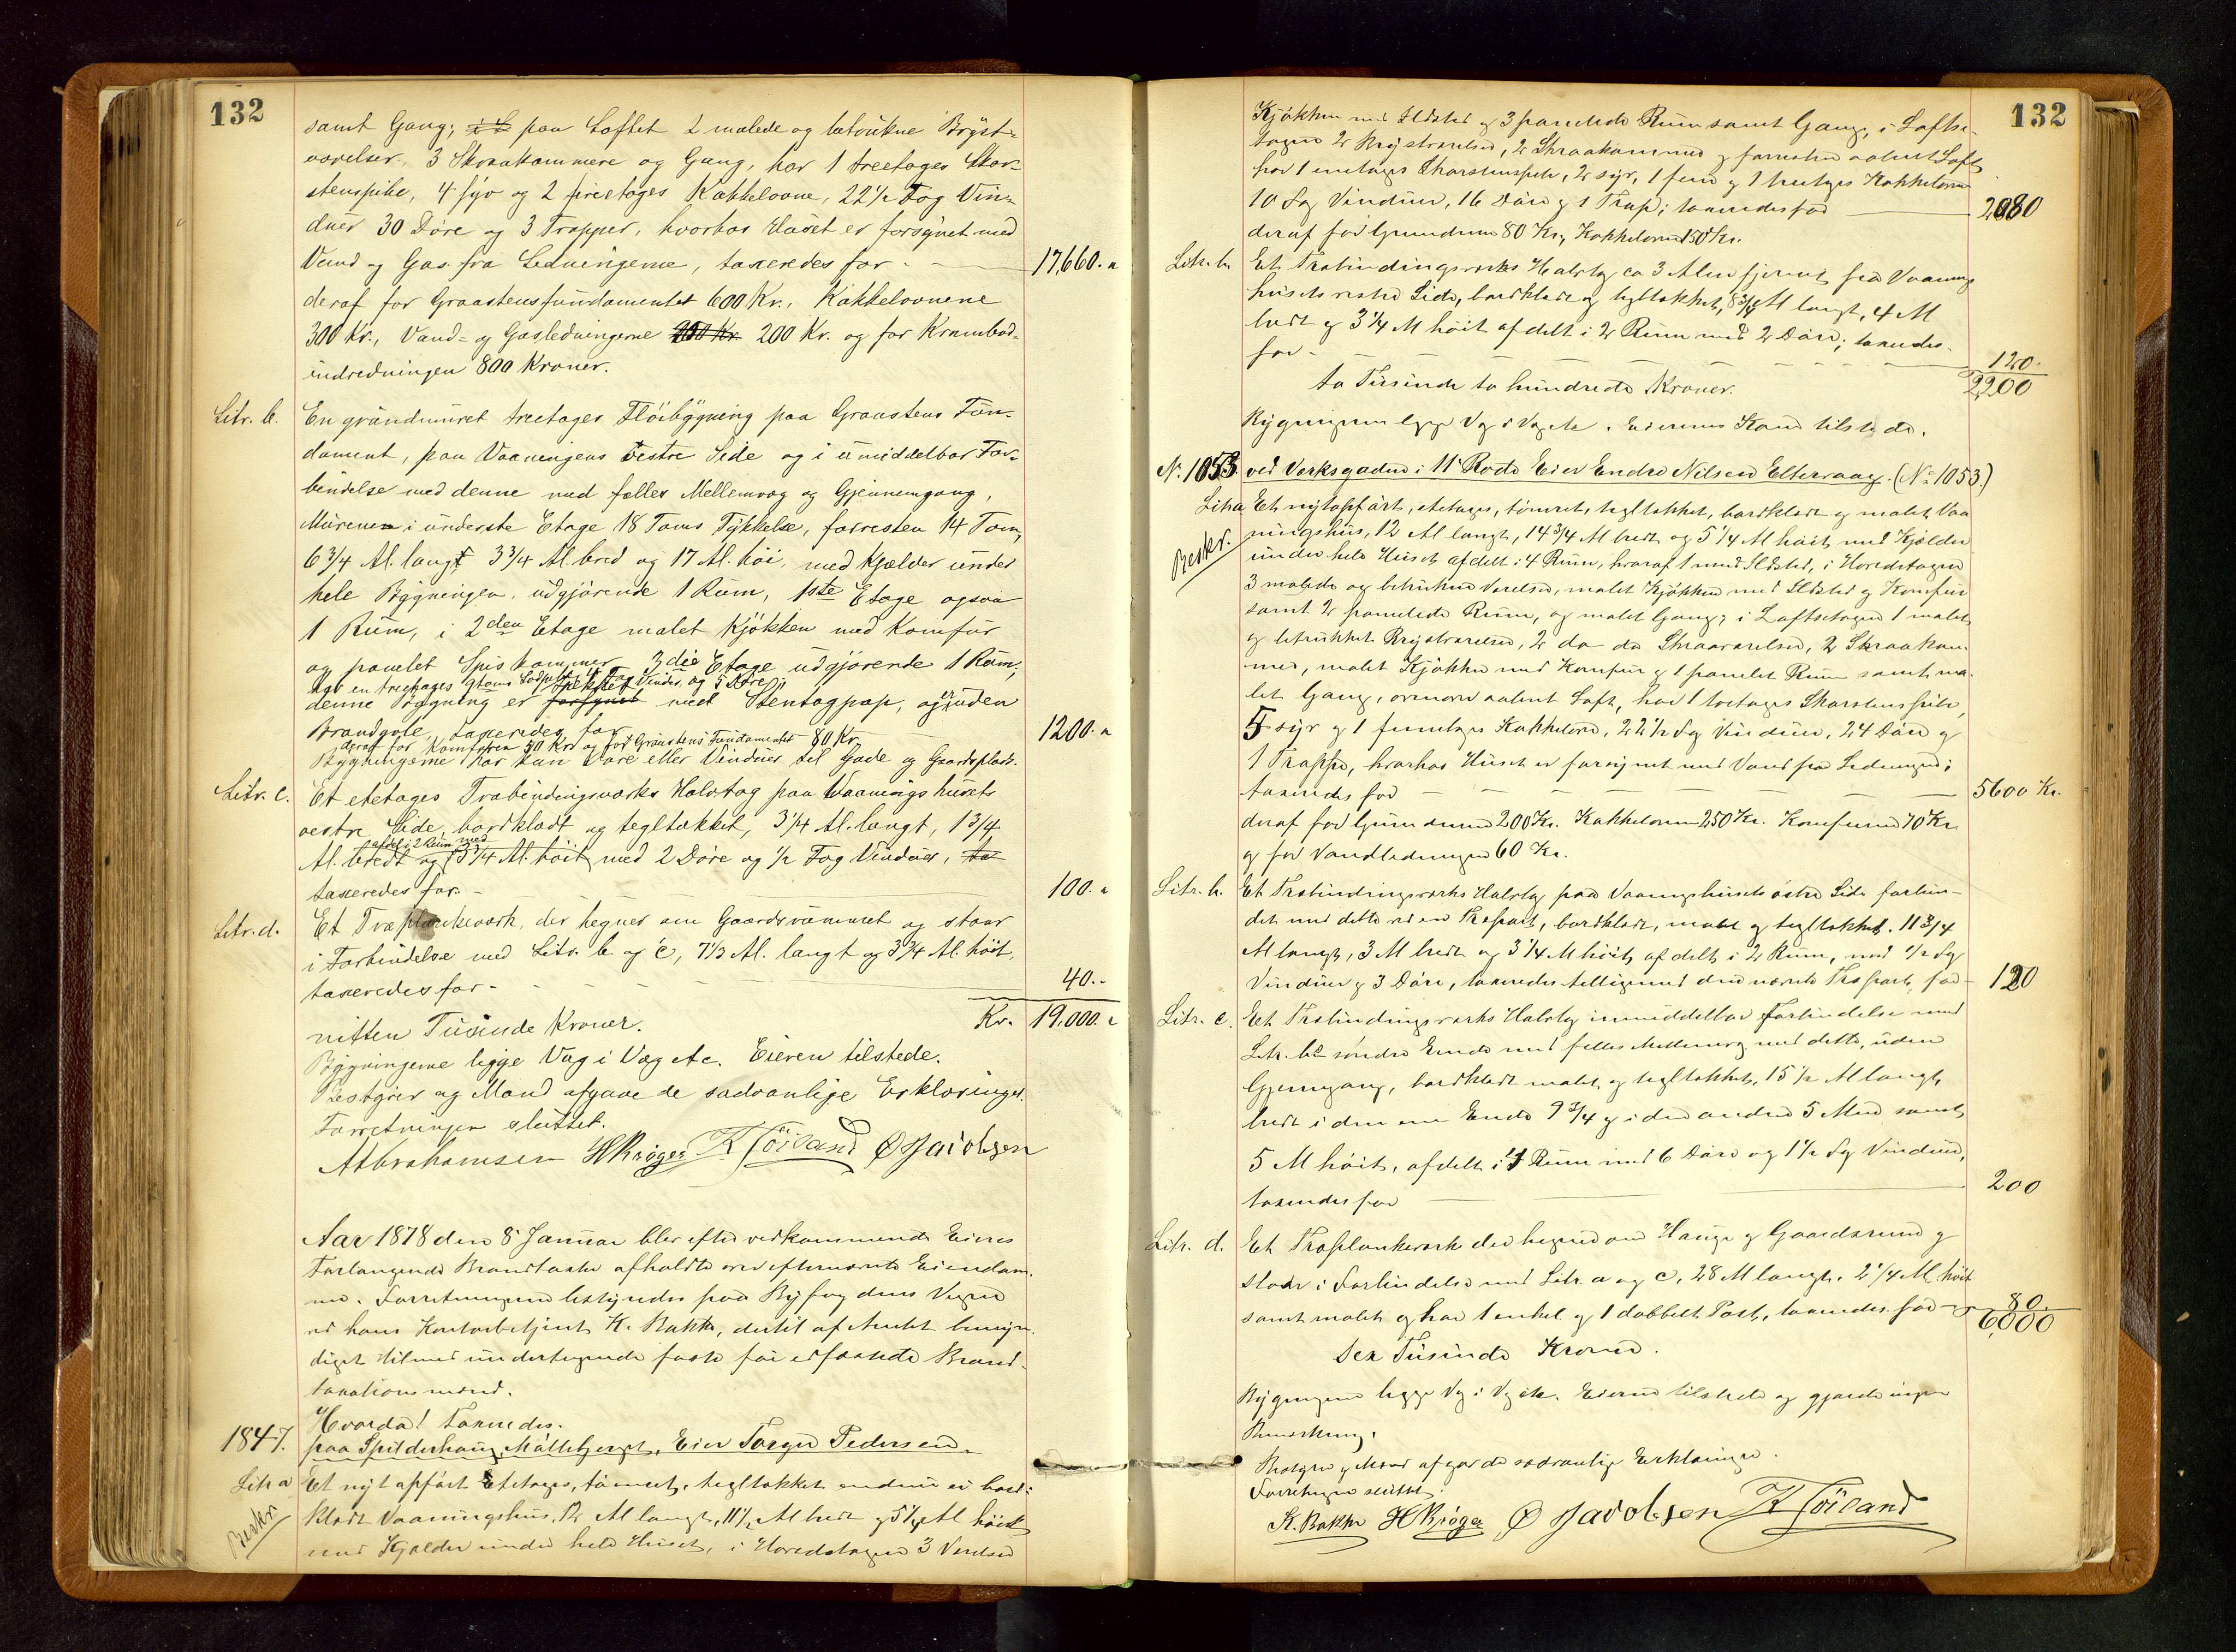 132
samt Gang; i L paa Loftet 2 malede og betrukne Bryst-
værelser, 3 Skraakammere og Gang, har 1 treetages Skor-
stenspibe, 4 fyr og 2 fireetages Kakkelovne, 22 1/2 Fag Vin-
duer 30 Døre og 3 Trapper, hvorhos Huset er forsynet med
Vand og Gas fra Ledningerne, taxeredes for - 17,660. "
deraf for Graastensfundamentet 600 Kr., Kakkelovnene
300 Kr., Vand- og Gasledningerne 200 Kr. 200 Kr. og for Krambod-
indredningen 800 Kroner.
Litr. b. En grundmuret treetages Fløibygning paa Graastens Fun-
dament, paa Vaaningens vestre Side og i umiddelbar For-
bindelse med denne med fælles Mellemvæg og Gjennemgang,
Murene i underste Etage 18 Toms Tykkelse, forresten 14 Tom,
6 3/4 Al. langt 3 3/4 Al. bred og 17 Al. høi, med Kjælder under
hele Bygningen, udgjørende 1 Rum, 1ste Etage ogsaa
1 Rum, i 2den Etage malet Kjøkken med Komfur
og panelet Spiskammer, 3die Etage udgjørende 1 Rum;
har en treetages 9toms Lodpibe, 4 Fag Vinduer og 5 Døre;
denne Bygning er forsynet tækket med Stentagpap, og er uden
Brandgavl, taxeredes for 1200. "
deraf for Komfuren 50 Kr. og for Graastens Fundamentet 80 Kr.
Bygningerne har kun Døre eller Vinduer til Gade og Gaardsplads.
Litr. c. Et etetages Træbindingsværks Halvtag paa Vaaningshusets
vestre Side, bordklædt og tegltækket, 3 1/4 Al. langt, 1 3/4
afdelt i 2 Rum med
Al. bredt og 3 3/4 Al. høit, med 2 Døre og 1/2 Fag Vinduer, ta
taxeredes for - 100. "
Litr. d. Et Træplankeværk, der hegner om Gaardsrummet og staar
i Forbindelse med Litr. b og c, 7 1/2 Al. langt og 3 3/4 Al. høit,
taxeredes for - 40. -
nitten Tusinde Kroner. Kr. 19,000. "
Bygningerne ligge Væg i Væg etc. Eieren tilstede.
Bestyrer og Mænd afgave de sædvanlige Erklæringer.
Forretningen sluttet.
A Abrahamsen HKrøger K Tøiland O Jacobsen
Aar 1878 den 8 Januar blev efter vedkommende Eieres
Forlangende Brandtaxter afholdte over efternævnte Eiendom-
me. Forretningerne bestyredes paa Byfogdens Vegne
ved hans Kontorbetjent K. Bakke, dertil af Amtet bemyn-
diget tilmed undertegnede faste for edfæstede Brand-
taxationsmænd.
Hvorda! Taxeredes.
1847. paa Spilderhaug Møllebjerget. Eier Torger Pedersen.
Litr a Et nyt opført Etetages, tømret, tegltækket endnu ei bord-
Beskr. klædt Vaaningshus, 12 Al langt, 11 1/2 Al bredt og 5 1/4 Al høit
med Kjælder under hele Huset, i Hovedetagen 3 Værelser
132
Kjøkken med Ildsted og 3 panelede Rum samt Gang, i Lofts-
etagen 2 Brystværelser, 2 Skraakammere og forresten aabent Loft,
har 1 enetages Skorstenspibe, 2 syr, 1 fem og 1 treetages Kakkelovne
10 Fag Vinduer, 16 Døre og 1 Trap; taxeredes for 2080
deraf for Grundmuren 80 Kr, Kakkelovne 150 Kr.
Litr. b. Et Træbindingsværks Halvtag ca 3 Alen fjernet fra Vaanings
husets vestre Side, bordklædt og tegltækket, 8 3/4 Al langt, 4 Al
bredt og 3 1/4 Al høit afdelt i 2 Rum med 2 Døre; taxeredes
for - 120.
to Tusinde to hundrede Kroner. 2,200
Bygningerne ligge Væg i Væg etc. Eierens Kone tilstede.
N. 1053 ved Verksgaden i 11 Rode Eier Endre Nilsen Eltervaag. (No 1053.)
Litr a Et nyt opført, etetages, tømret, tegltækket, bordklædt og malet Vaa
Beskr. ningshus, 12 Al langt, 14 3/4 Al bredt og 5 1/4 Al høit, med Kjælder
under hele Huset afdelt i 4 Rum, hvoraf 1 med Ildsted, i Hovedetagen
3 malede og betrukne Værelser, malet Kjøkken med Ildsted og Komfur
samt 2 panelede Rum, og malet Gang; i Loftsetagen 1 malet
og betrukket Brystværelse, 2 do do Skraaværelser, 2 Skraakam-
mere, malet Kjøkken med Komfur og 1 panelet Rum samt ma-
let Gang, ovenover aabent Loft, har 1 toetages Skorstenspibe,
5 syr og 1 femetages Kakkelovn, 22 1/2 Fag Vinduer, 24 Døre og
1 Trappe, hvorhos Huset er forsynet med Vand fra Ledningen;
taxeredes for 5600 Kr.
deraf for Grundmuren 200 Kr. Kakkelovne 250 Kr. Komfurene 70 Kr.
og for Vandledningen 60 Kr.
Litr. b. Et Træbindingsværks Halvtag paa Vaaningshusets østre Side forbun-
det med dette ved en Træport, bordklædt, malet og tegltækket. 11 3/4
Al langt, 3 Al bredt og 3 1/4 Al høit, afdelt i 2 Rum, med 1/2 Fag
Vinduer og 3 Døre, taxeredes tilligemed den nævnte Træport, for 120
Litr. c. Et Træbindingsværks Halvtag i umiddelbar Forbindelse med
Litr. b's søndre Ende med fælles Mellemvæg med dette, uden
Gjennemgang, bordklædt malet og tegltækket, 15 1/2 Al langt,
bredt i den ene Ende 9 3/4 og i den anden 5 Al med samt
5 Al høit, afdelt i 4 Rum med 6 Døre og 1 1/2 Fag Vinduer,
taxeredes for 200
Litr. d. Et Træplankeværk der hegner om Hauge og Gaardsrum og
staar i Forbindelse med Litr. a og c, 28 Al langt. 2 1/4 Al. høit
samt malet og har 1 enkel og 1 dobbelt Port, taxeredes for 80.
sex Tusinde Kroner. 6,000
Bygningerne ligge Væg i Væg etc. Eieren tilstede og gjorde ingen
Bemærkning.
Bestyrer og Mænd afgav de sædvanlige Erklæringer.
Forretningen sluttet.
K. Bakke HKrøger O Jacobsen K Tøiland